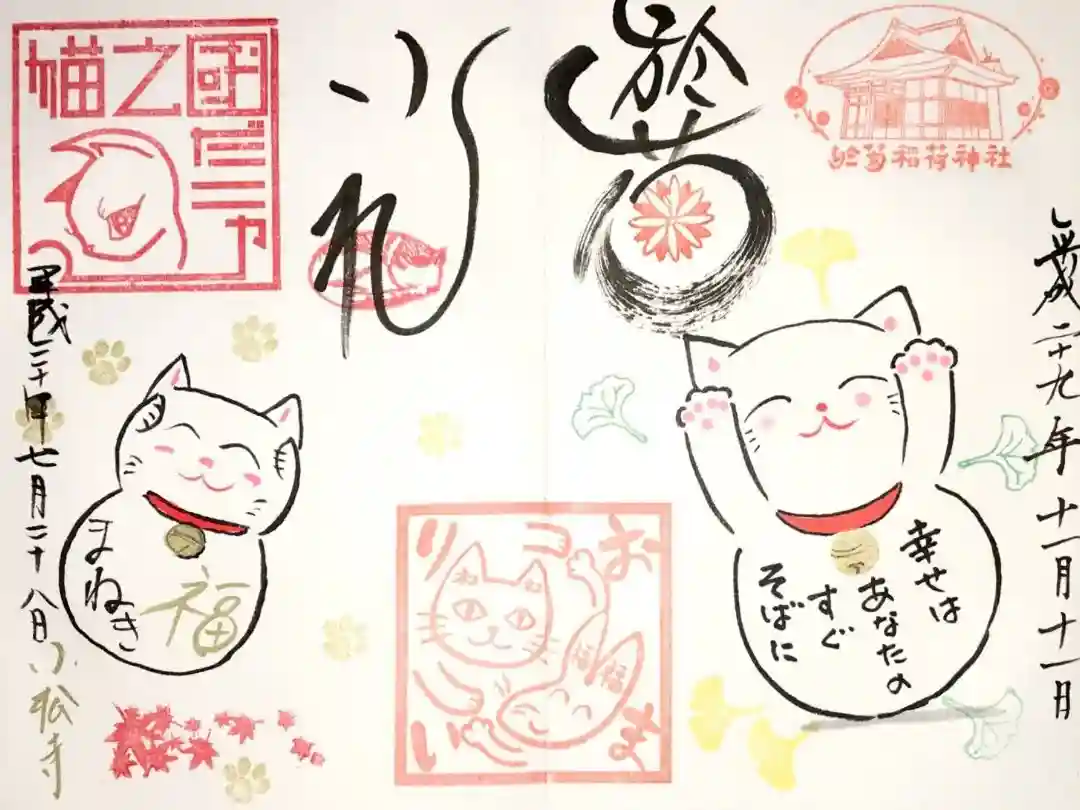 於菊
於菊稲荷神社
平成二十九年十一月十一月
幸せは
あなたの
すぐ
そばに
おまいリ
コ
福福
猫之國
だニャ
まねき
福
平成二十年七月二十八日
小松寺